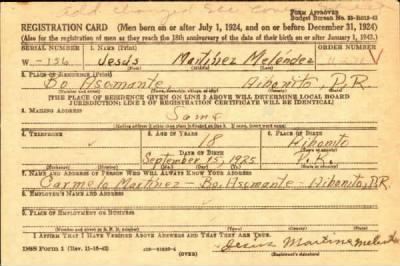 REGISTRATION CARD (Men born on or after July 1, 1924, and on or before December 31, 1924)
FORM APPROVED
(Also for the registration of men as they reach the 18th anniversary of the date of their birth on or after January 1, 1943.)
SERIAL NUMBER 1. NAME (Print) ORDER NUMBER
W.-156 Jesús Martínez Meléndez
2. PLACE OF RESIDENCE (Print)
Bo Asomante Aibonito P.R.
[THE PLACE OF RESIDENCE GIVEN ON LINE 2 ABOVE WILL DETERMINE LOCAL BOARD
JURISDICTION; LINE 2 OF REGISTRATION CERTIFICATE WILL BE IDENTICAL]
3. MAILING ADDRESS
Same
4. TELEPHONE 5. AGE IN YEARS 6. PLACE OF BIRTH
18 Aibonito
DATE OF BIRTH
September 15, 1925 P.R.
7. NAME AND ADDRESS OF PERSON WHO WILL ALWAYS KNOW YOUR ADDRESS
Carmelo Martínez - Bo. Asomante - Aibonito, P.R.
8. EMPLOYER'S NAME AND ADDRESS
9. PLACE OF EMPLOYMENT OR BUSINESS
I AFFIRM THAT I HAVE VERIFIED ABOVE ANSWERS AND THAT THEY ARE TRUE.
DSS Form 1 (OVER) (Registrant's signature)